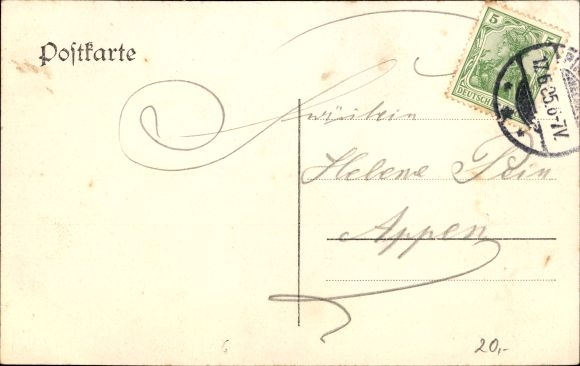 Postkarte
5 5
DEUTSCHES
17.6.05.6-7V.
Fräulein
Helene Pein
Appen
20,-
6